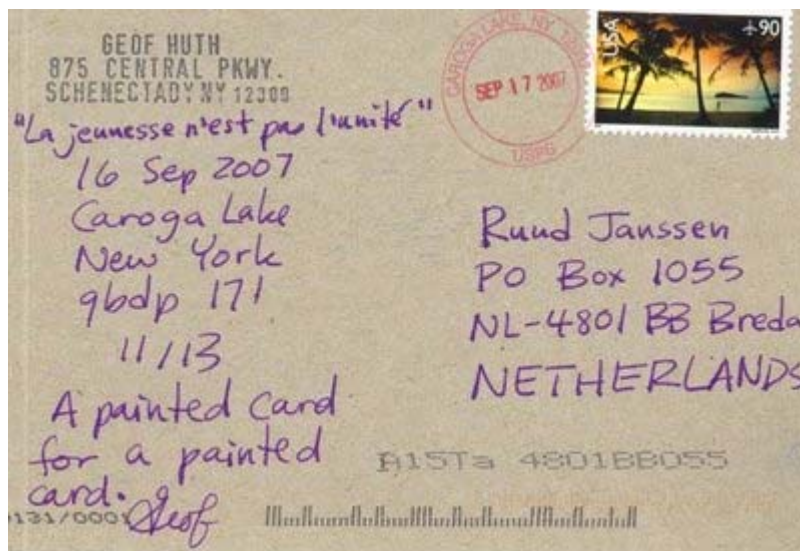 GEOF HUTH
875 CENTRAL PKWY.
SCHENECTADY NY 12309
"La jeunesse n'est pas l'unité"
16 Sep 2007
Caroga Lake
New York
qbdp 171
11/13
A painted card
for a painted
card.
Geof
CAROGA LAKE, NY
SEP 17 2007
USPS
USA
90
Ruud Janssen
PO Box 1055
NL-4801 BB Breda
NETHERLANDS
A15Ta 4801BB055
0131/0001